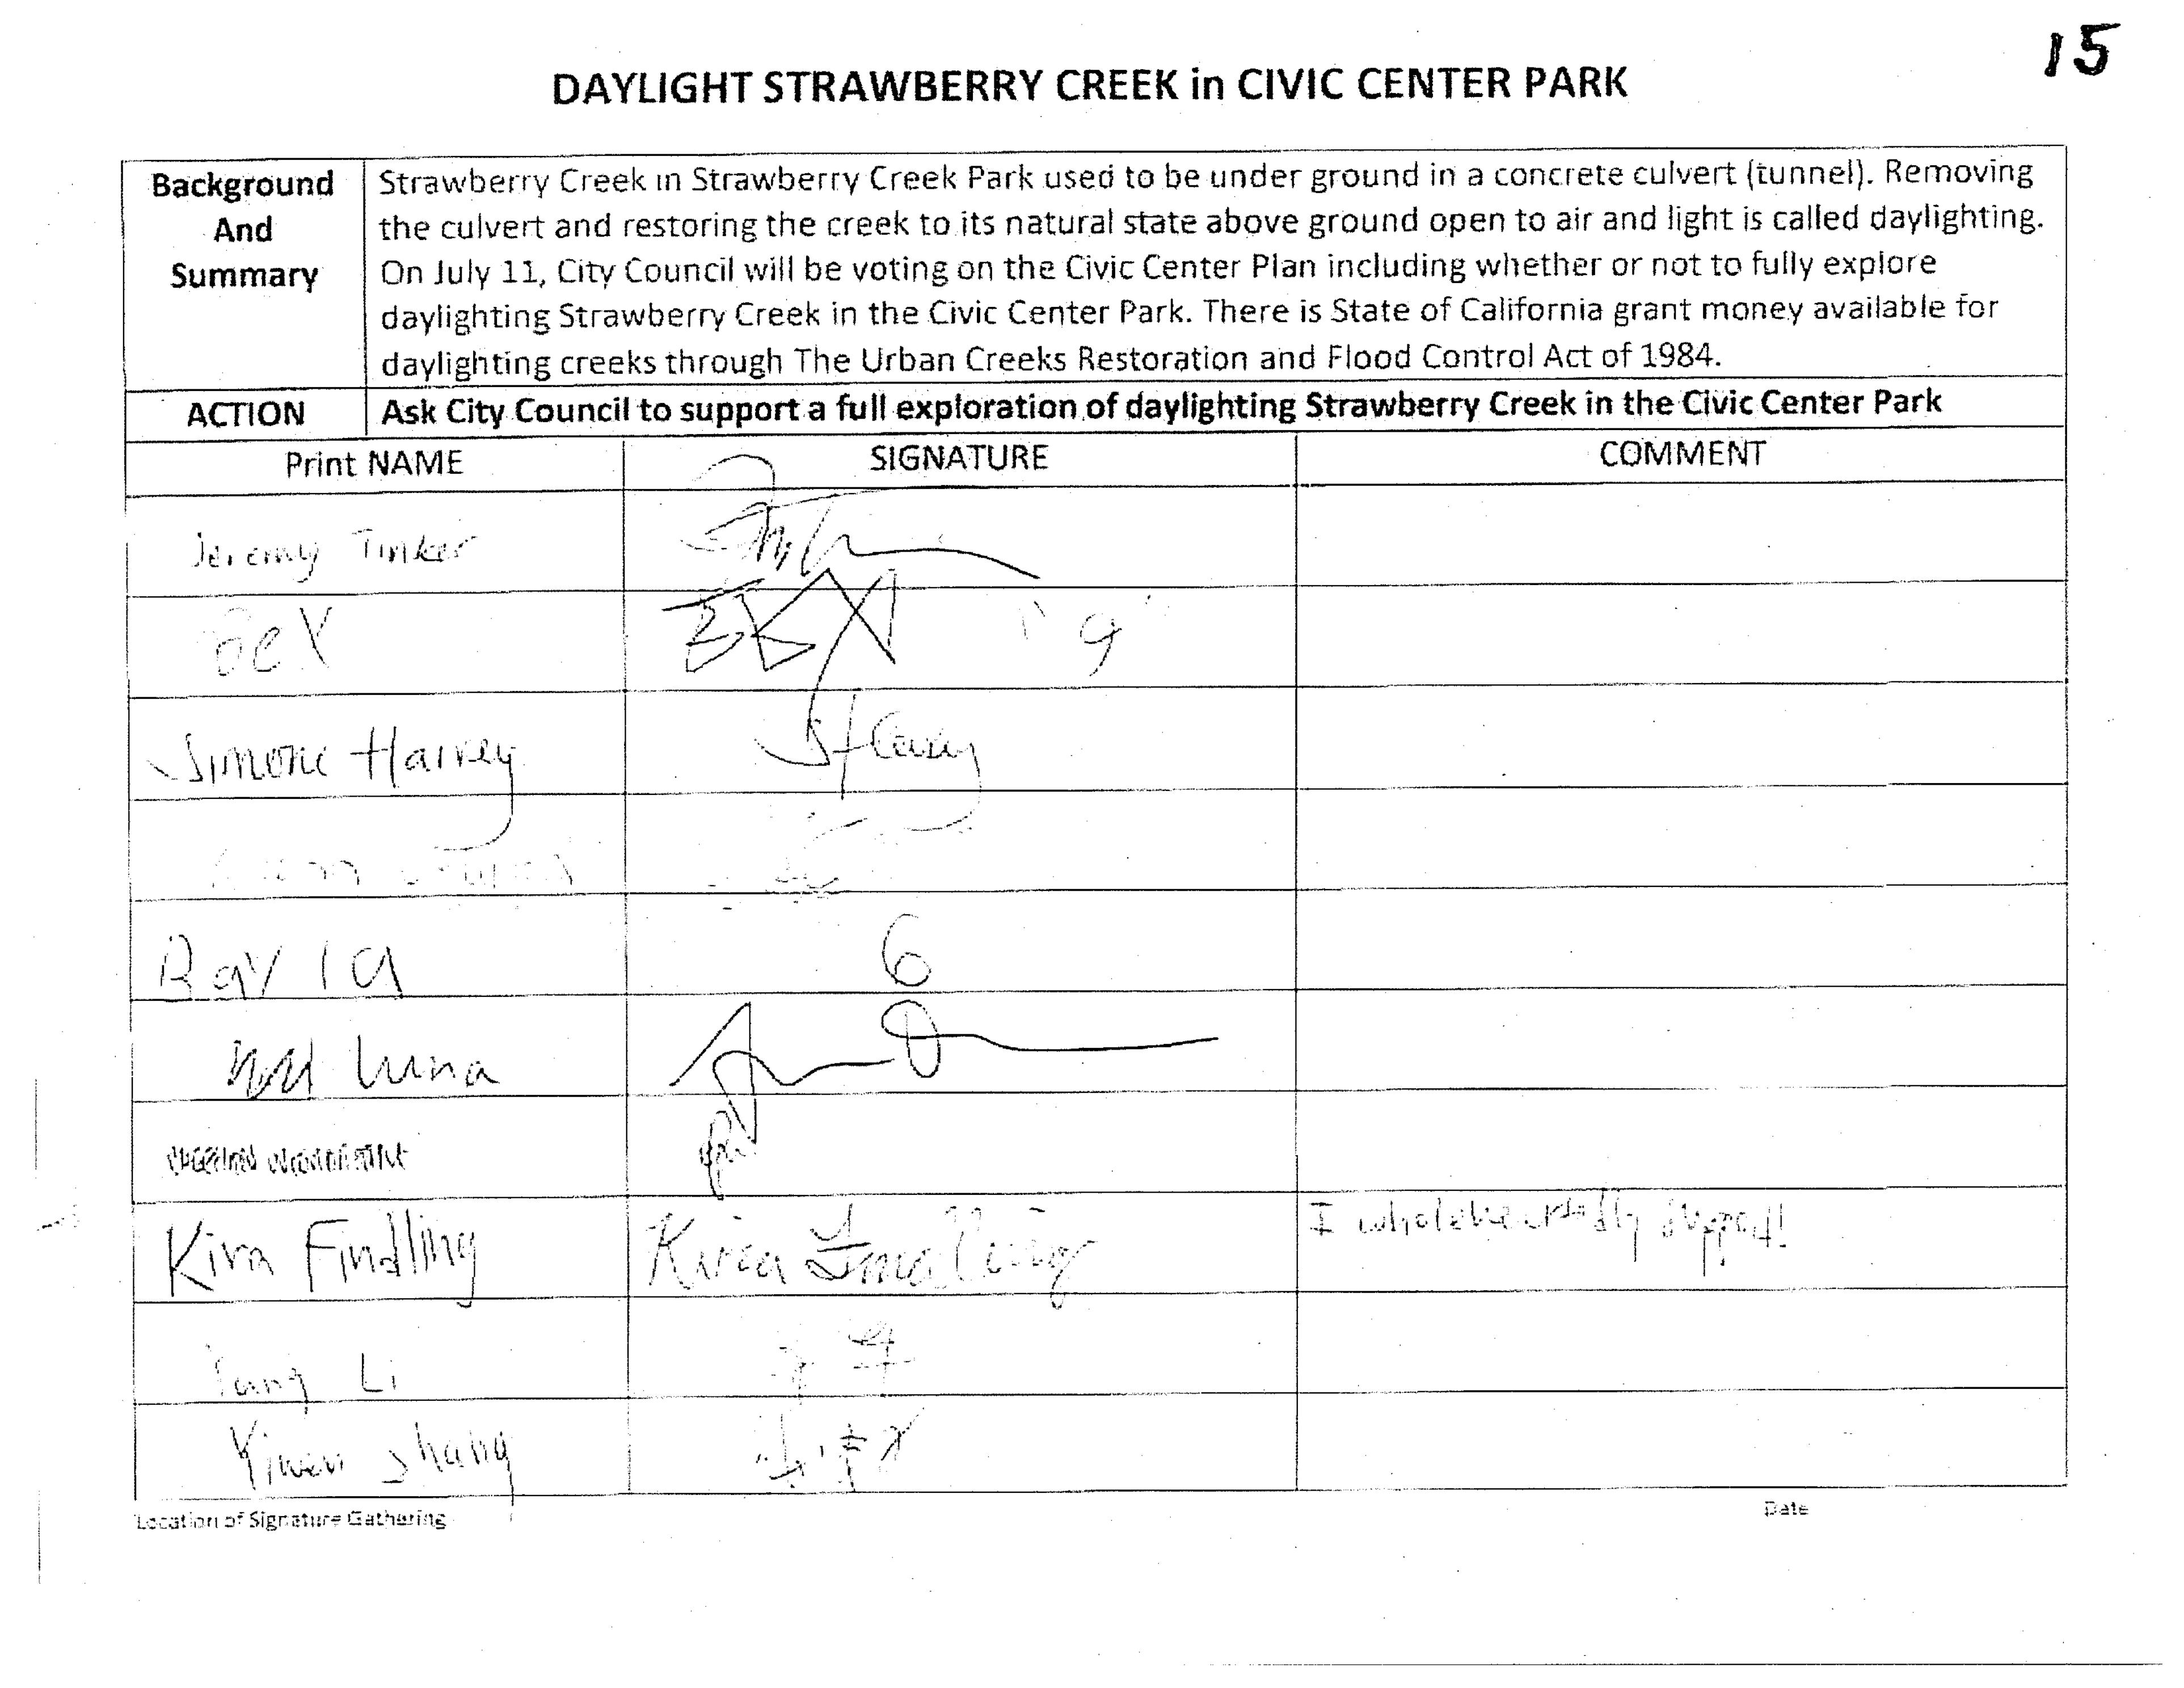 15
DAYLIGHT STRAWBERRY CREEK in CIVIC CENTER PARK
Background And Summary
Strawberry Creek in Strawberry Creek Park used to be under ground in a concrete culvert (tunnel). Removing
the culvert and restoring the creek to its natural state above ground open to air and light is called daylighting.
On July 11, City Council will be voting on the Civic Center Plan including whether or not to fully explore
daylighting Strawberry Creek in the Civic Center Park. There is State of California grant money available for
daylighting creeks through The Urban Creeks Restoration and Flood Control Act of 1984.
ACTION Ask City Council to support a full exploration of daylighting Strawberry Creek in the Civic Center Park
Print NAME SIGNATURE COMMENT
Jeremy Tinker
Simone Harvey
6
Luna
Kira Findling Kira Findling I wholeheartedly support!
Li
Yiwen Shang
Location of Signature Gathering Date